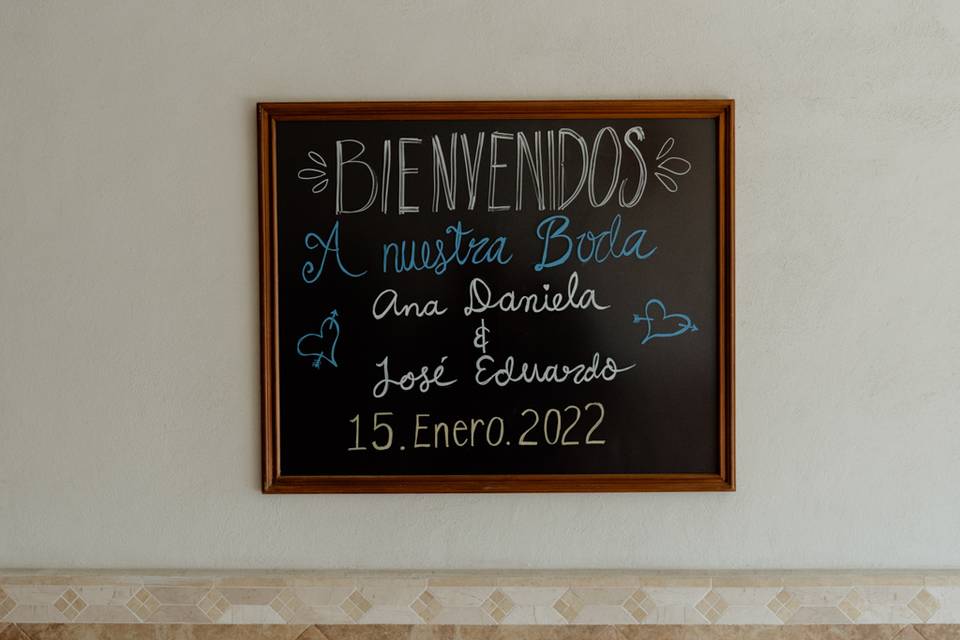 BIENVENIDOS
A nuestra Boda
Ana Daniela
&
José Eduardo
15.Enero.2022